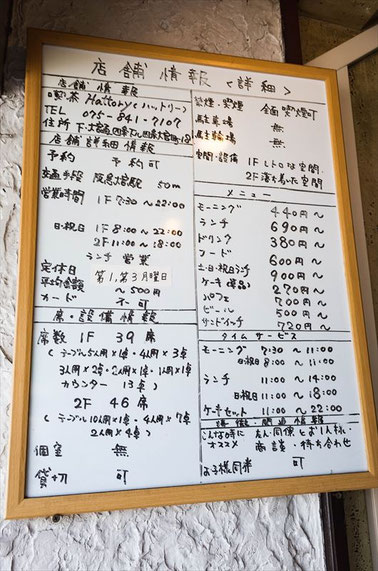 店舗情報<詳細>
店舗情報
喫茶 Hattory (ハットリー)
TEL 075-841-7107
住所 下京区四条下ル四条大宮町18
店舗詳細情報
予約 予約可
交通手段 阪急大宮駅 50m
営業時間 1F 7:30〜22:00
日・祝日 1F 8:00〜22:00
2F 11:00〜18:00
ランチ 営業
定休日 第1,第3月曜日
平均金額 〜500円
カード 不可
席・設備情報
席数 1F 39席
(テーブル5人用×1卓・4人用×3卓
3人用×2卓・2人用×1卓・1人用×1卓
カウンター 13卓)
2F 46席
(テーブル10人用×1卓・4人用×7卓
2人用×4卓)
個室 無
貸切 可
禁煙・喫煙 全面喫煙可
駐車場 無
駐輪場 無
空間・設備 1Fレトロな空間
2F落ち着いた空間
メニュー
モーニング 440円〜
ランチ 690円〜
ドリンク 380円〜
フード 600円〜
土・日・祝日ランチ 900円〜
ケーキ(単品) 270円〜
パフェ 700円〜
ビール 500円〜
サンドイッチ 720円〜
タイムサービス
モーニング 7:30〜11:00
日・祝 8:00〜11:00
ランチ 11:00〜14:00
日・祝日 11:00〜18:00
ケーキセット 11:00〜22:00
特徴・関連情報
こんな時に 友人・同僚とお1人様・
オススメ 商談・待ち合わせ
お子様同伴 可